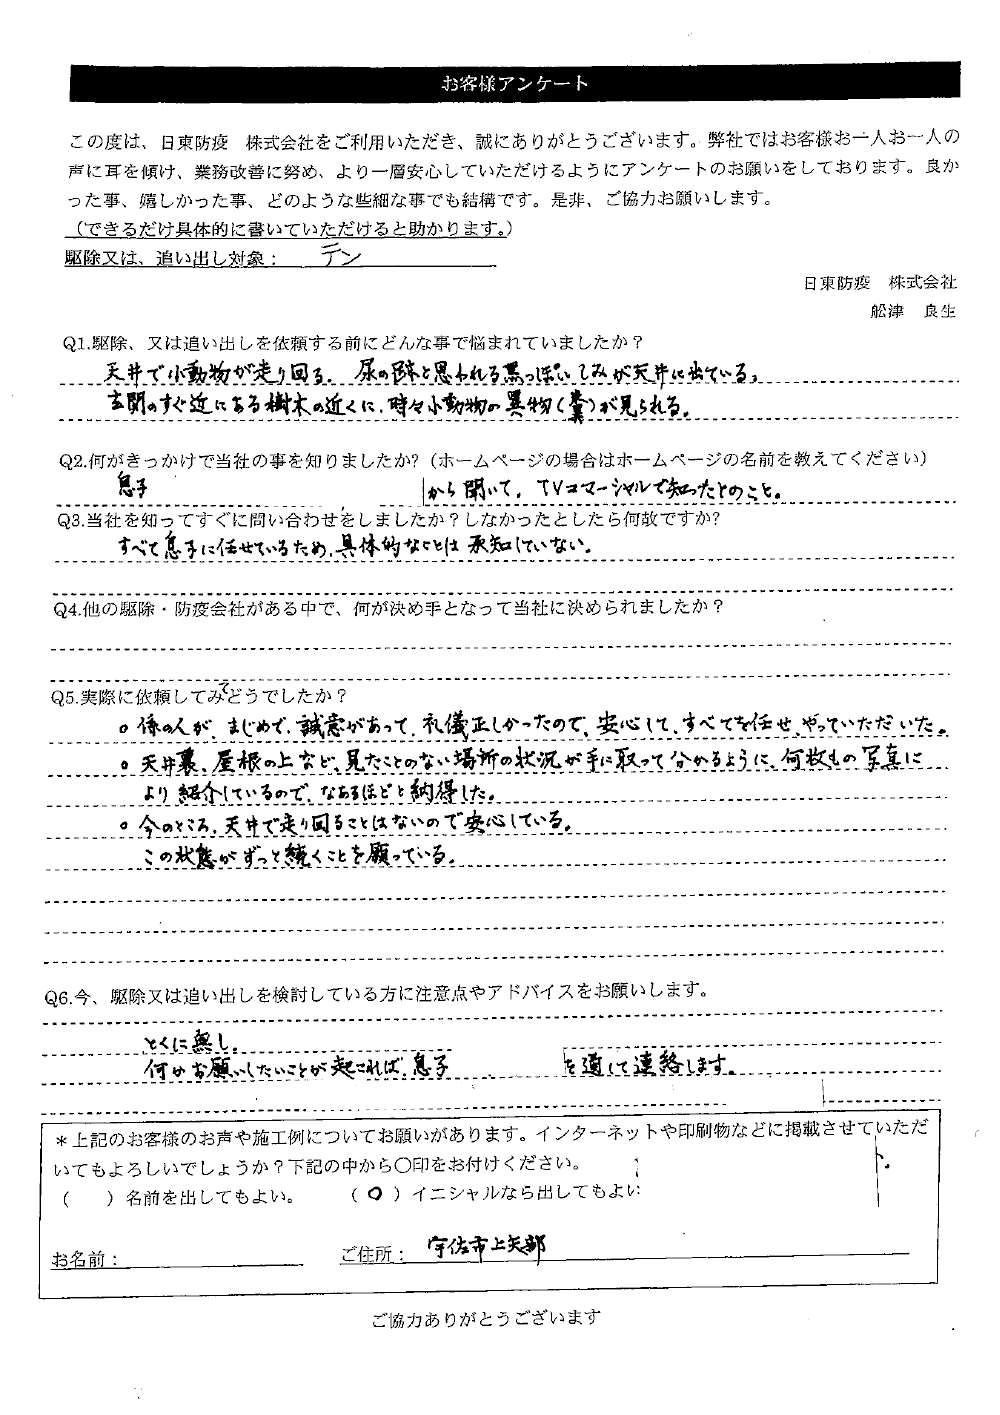 お客様アンケート
この度は、日東防疫　株式会社をご利用いただき、誠にありがとうございます。弊社ではお客様お一人お一人の
声に耳を傾け、業務改善に努め、より一層安心していただけるようにアンケートのお願いをしております。良か
った事、嬉しかった事、どのような些細な事でも結構です。是非、ご協力お願いします。
（できるだけ具体的に書いていただけると助かります。）
駆除又は、追い出し対象：　テン
日東防疫　株式会社
舩津　良生
Q1.駆除、又は追い出しを依頼する前にどんな事で悩まれていましたか？
天井で小動物が走り回る。尿の跡と思われる黒っぽいしみが天井に出ている。
玄関のすぐ近にある樹木の近くに、時々小動物の異物（糞）が見られる。
Q2.何がきっかけで当社の事を知りましたか?（ホームページの場合はホームページの名前を教えてください）
息子　から聞いて。TVコマーシャルで知ったとのこと。
Q3.当社を知ってすぐに問い合わせをしましたか？しなかったとしたら何故ですか?
すべて息子に任せているため、具体的なことは承知していない。
Q4.他の駆除・防疫会社がある中で、何が決め手となって当社に決められましたか？
Q5.実際に依頼してみてどうでしたか？
○ 係の人が、まじめで、誠意があって、礼儀正しかったので、安心して、すべてを任せ、やっていただいた。
○ 天井裏、屋根の上など、見たことのない場所の状況が手に取って分かるように、何枚もの写真に
より紹介しているので、なあるほどと納得した。
○ 今のところ、天井で走り回ることはないので安心している。
この状態がずっと続くことを願っている。
Q6.今、駆除又は追い出しを検討している方に注意点やアドバイスをお願いします。
とくに無し。
何かお願いしたいことが起これば、息子　を通して連絡します。
＊上記のお客様のお声や施工例についてお願いがあります。インターネットや印刷物などに掲載させていただ
いてもよろしいでしょうか？下記の中から〇印をお付けください。
（　）名前を出してもよい。　（ ○ ）イニシャルなら出してもよい
お名前：　ご住所：　宇佐市上矢部
ご協力ありがとうございます